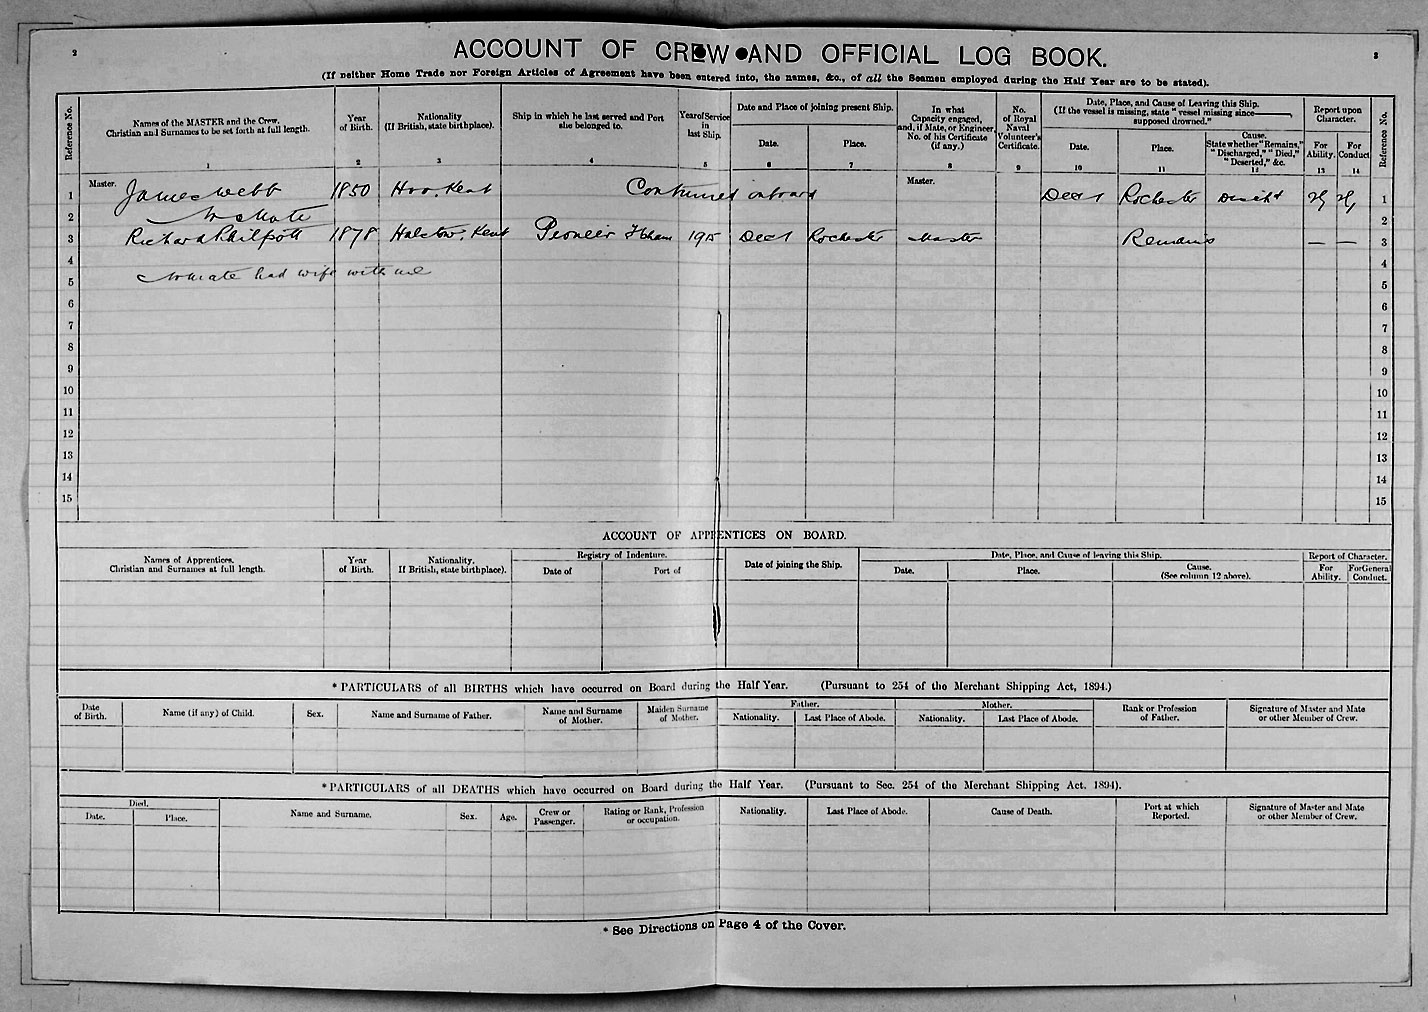 2
ACCOUNT OF CREW AND OFFICIAL LOG BOOK.
3
(If neither Home Trade nor Foreign Articles of Agreement have been entered into, the names, &c., of all the Seamen employed during the Half Year are to be stated).
Reference No.
Names of the MASTER and the Crew.
Christian and Surnames to be set forth at full length.
1
Year
of Birth.
2
Nationality
(If British, state birthplace).
3
Ship in which he last served and Port
she belonged to.
4
Year of Service
in
last Ship.
5
Date and Place of joining present Ship.
Date.
6
Place.
7
In what
Capacity engaged,
and, if Mate, or Engineer,
No. of his Certificate
(if any.)
8
No.
of Royal
Naval
Volunteer's
Certificate.
9
Date, Place, and Cause of Leaving this Ship.
(If the vessel is missing, state "vessel missing since
supposed drowned."
Date.
10
Place.
11
Cause.
State whether "Remains,"
"Discharged," "Died,"
"Deserted," &c.
12
Report upon
Character.
For
Ability.
13
For
Conduct
14
Reference No.
1 Master. James Webb 1850 Hoo, Kent Continued onboard Master. Dec 1 Rochester 1
2 No Mate 2
3 Richard Philpott 1878 Halstow, Kent Pioneer 1915 Dec 1 Rochester Master Remains — — 3
4 4
5 No mate had wife with me 5
6 6
7 7
8 8
9 9
10 10
11 11
12 12
13 13
14 14
15 15
ACCOUNT OF APPRENTICES ON BOARD.
Names of Apprentices.
Christian and Surnames at full length.
Year
of Birth.
Nationality.
If British, state birthplace).
Registry of Indenture.
Date of
Port of
Date of joining the Ship.
Date, Place, and Cause of leaving this Ship.
Date.
Place.
Cause.
(See column 12 above).
Report of Character.
For
Ability.
For General
Conduct.
*PARTICULARS of all BIRTHS which have occurred on Board during the Half Year. (Pursuant to 254 of the Merchant Shipping Act, 1894.)
Date
of Birth.
Name (if any) of Child.
Sex.
Name and Surname of Father.
Name and Surname
of Mother.
Maiden Surname
of Mother.
Father.
Nationality.
Last Place of Abode.
Mother.
Nationality.
Last Place of Abode.
Rank or Profession
of Father.
Signature of Master and Mate
or other Member of Crew.
*PARTICULARS of all DEATHS which have occurred on Board during the Half Year. (Pursuant to Sec. 254 of the Merchant Shipping Act. 1894).
Died.
Date.
Place.
Name and Surname.
Sex.
Age.
Crew or
Passenger.
Rating or Rank, Profession
or occupation.
Nationality.
Last Place of Abode.
Cause of Death.
Port at which
Reported.
Signature of Master and Mate
or other Member of Crew.
* See Directions on Page 4 of the Cover.